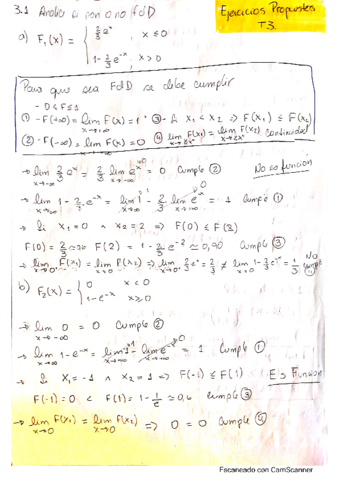 3.1 Analice si son o no FdD
Ejercicios Propuestos
T3.
a) F₁(x) = { 2/3 eˣ , x ≤ 0
1 - 2/3 e⁻ˣ , x > 0
Para que sea FdD se debe cumplir
- 0 ≤ F ≤ 1
① - F(+∞) = lim x→+∞ F(x) = 1 ③ - Si x₁ < x₂ ⇒ F(x₁) ≤ F(x₂)
② - F(-∞) = lim x→-∞ F(x) = 0 ④ lim F(x₁) = lim F(x₂) continuidad
→ lim x→-∞ 2/3 eˣ = 2/3 lim x→-∞ eˣ = 0 Cumple ② No es funcion
→ lim 1 - 2/3 e⁻ˣ = lim 1 - 2/3 lim e⁻ˣ = 1 Cumple ①
→ Si x₁ = 0 ∧ x₂ = 2 ⇒ F(0) ≤ F(2)
F(0) = 2/3 F(2) = 1 - 2/3 e⁻² ≃ 0,90 Cumple ③
→ lim F(x₁) = lim F(x₂) ⇒ lim 2/3 eˣ = 2/3 ≠ lim 1 - 2/3 e⁻ˣ = 1/3 No cumple ④
b) F₂(x) = { 0 x < 0
1 - e⁻ˣ x ≥ 0
→ lim x→-∞ 0 = 0 Cumple ②
→ lim 1 - e⁻ˣ = lim 1 - lim e⁻ˣ = 1 Cumple ①
→ Si x₁ = -1 ∧ x₂ = 1 ⇒ F(-1) ≤ F(1) Es Funcion
F(-1) = 0 < F(1) = 1 - 1/e ≃ 0,6 cumple ③
→ lim x→0 F(x₁) = lim x→0 F(x₂) ⇒ 0 = 0 Cumple ④
Escaneado con CamScanner